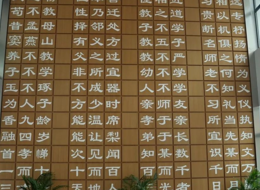 人之初 性本善 性相近 习相远
苟不教 性乃迁 教之道 贵以专
昔孟母 择邻处 子不学 断机杼
窦燕山 有义方 教五子 名俱扬
养不教 父之过 教不严 师之惰
子不学 非所宜 幼不学 老何为
玉不琢 不成器 人不学 不知义
为人子 方少时 亲师友 习礼仪
香九龄 能温席 孝于亲 所当执
融四岁 能让梨 弟于长 宜先知
首孝悌 次见闻 知某数 识某文
一而十 十而百 百而千 千而万